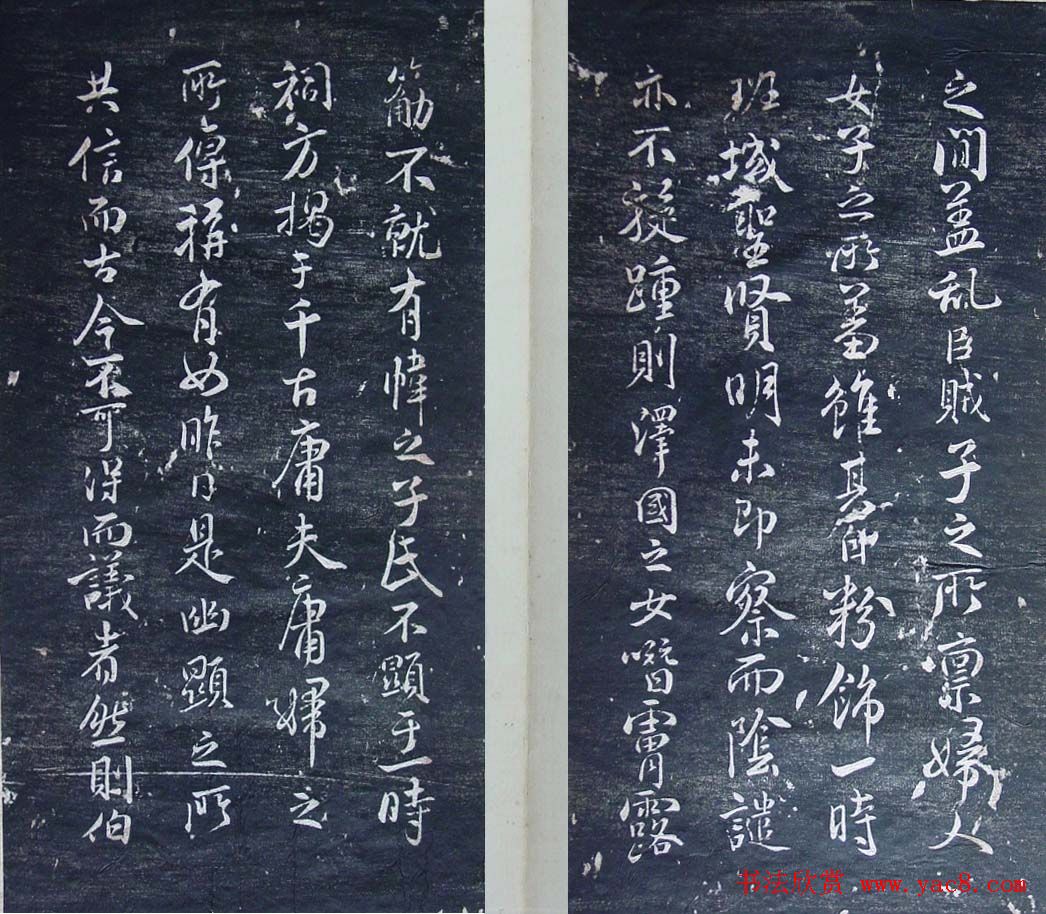 之間盖乱臣賊子之所禀婦人
女子之所蓄雖粉飾一時
班域聖賢明未即察而陰譴
亦不旋踵則澤國之女噆膚露
筋不就有幃之子氏不顯于一時
祠方揭于千古庸夫庸婦之
所傳稱有如昨日是幽顯之所
共信而古今不可得而議者然則伯
书法欣赏 www.yac8.com